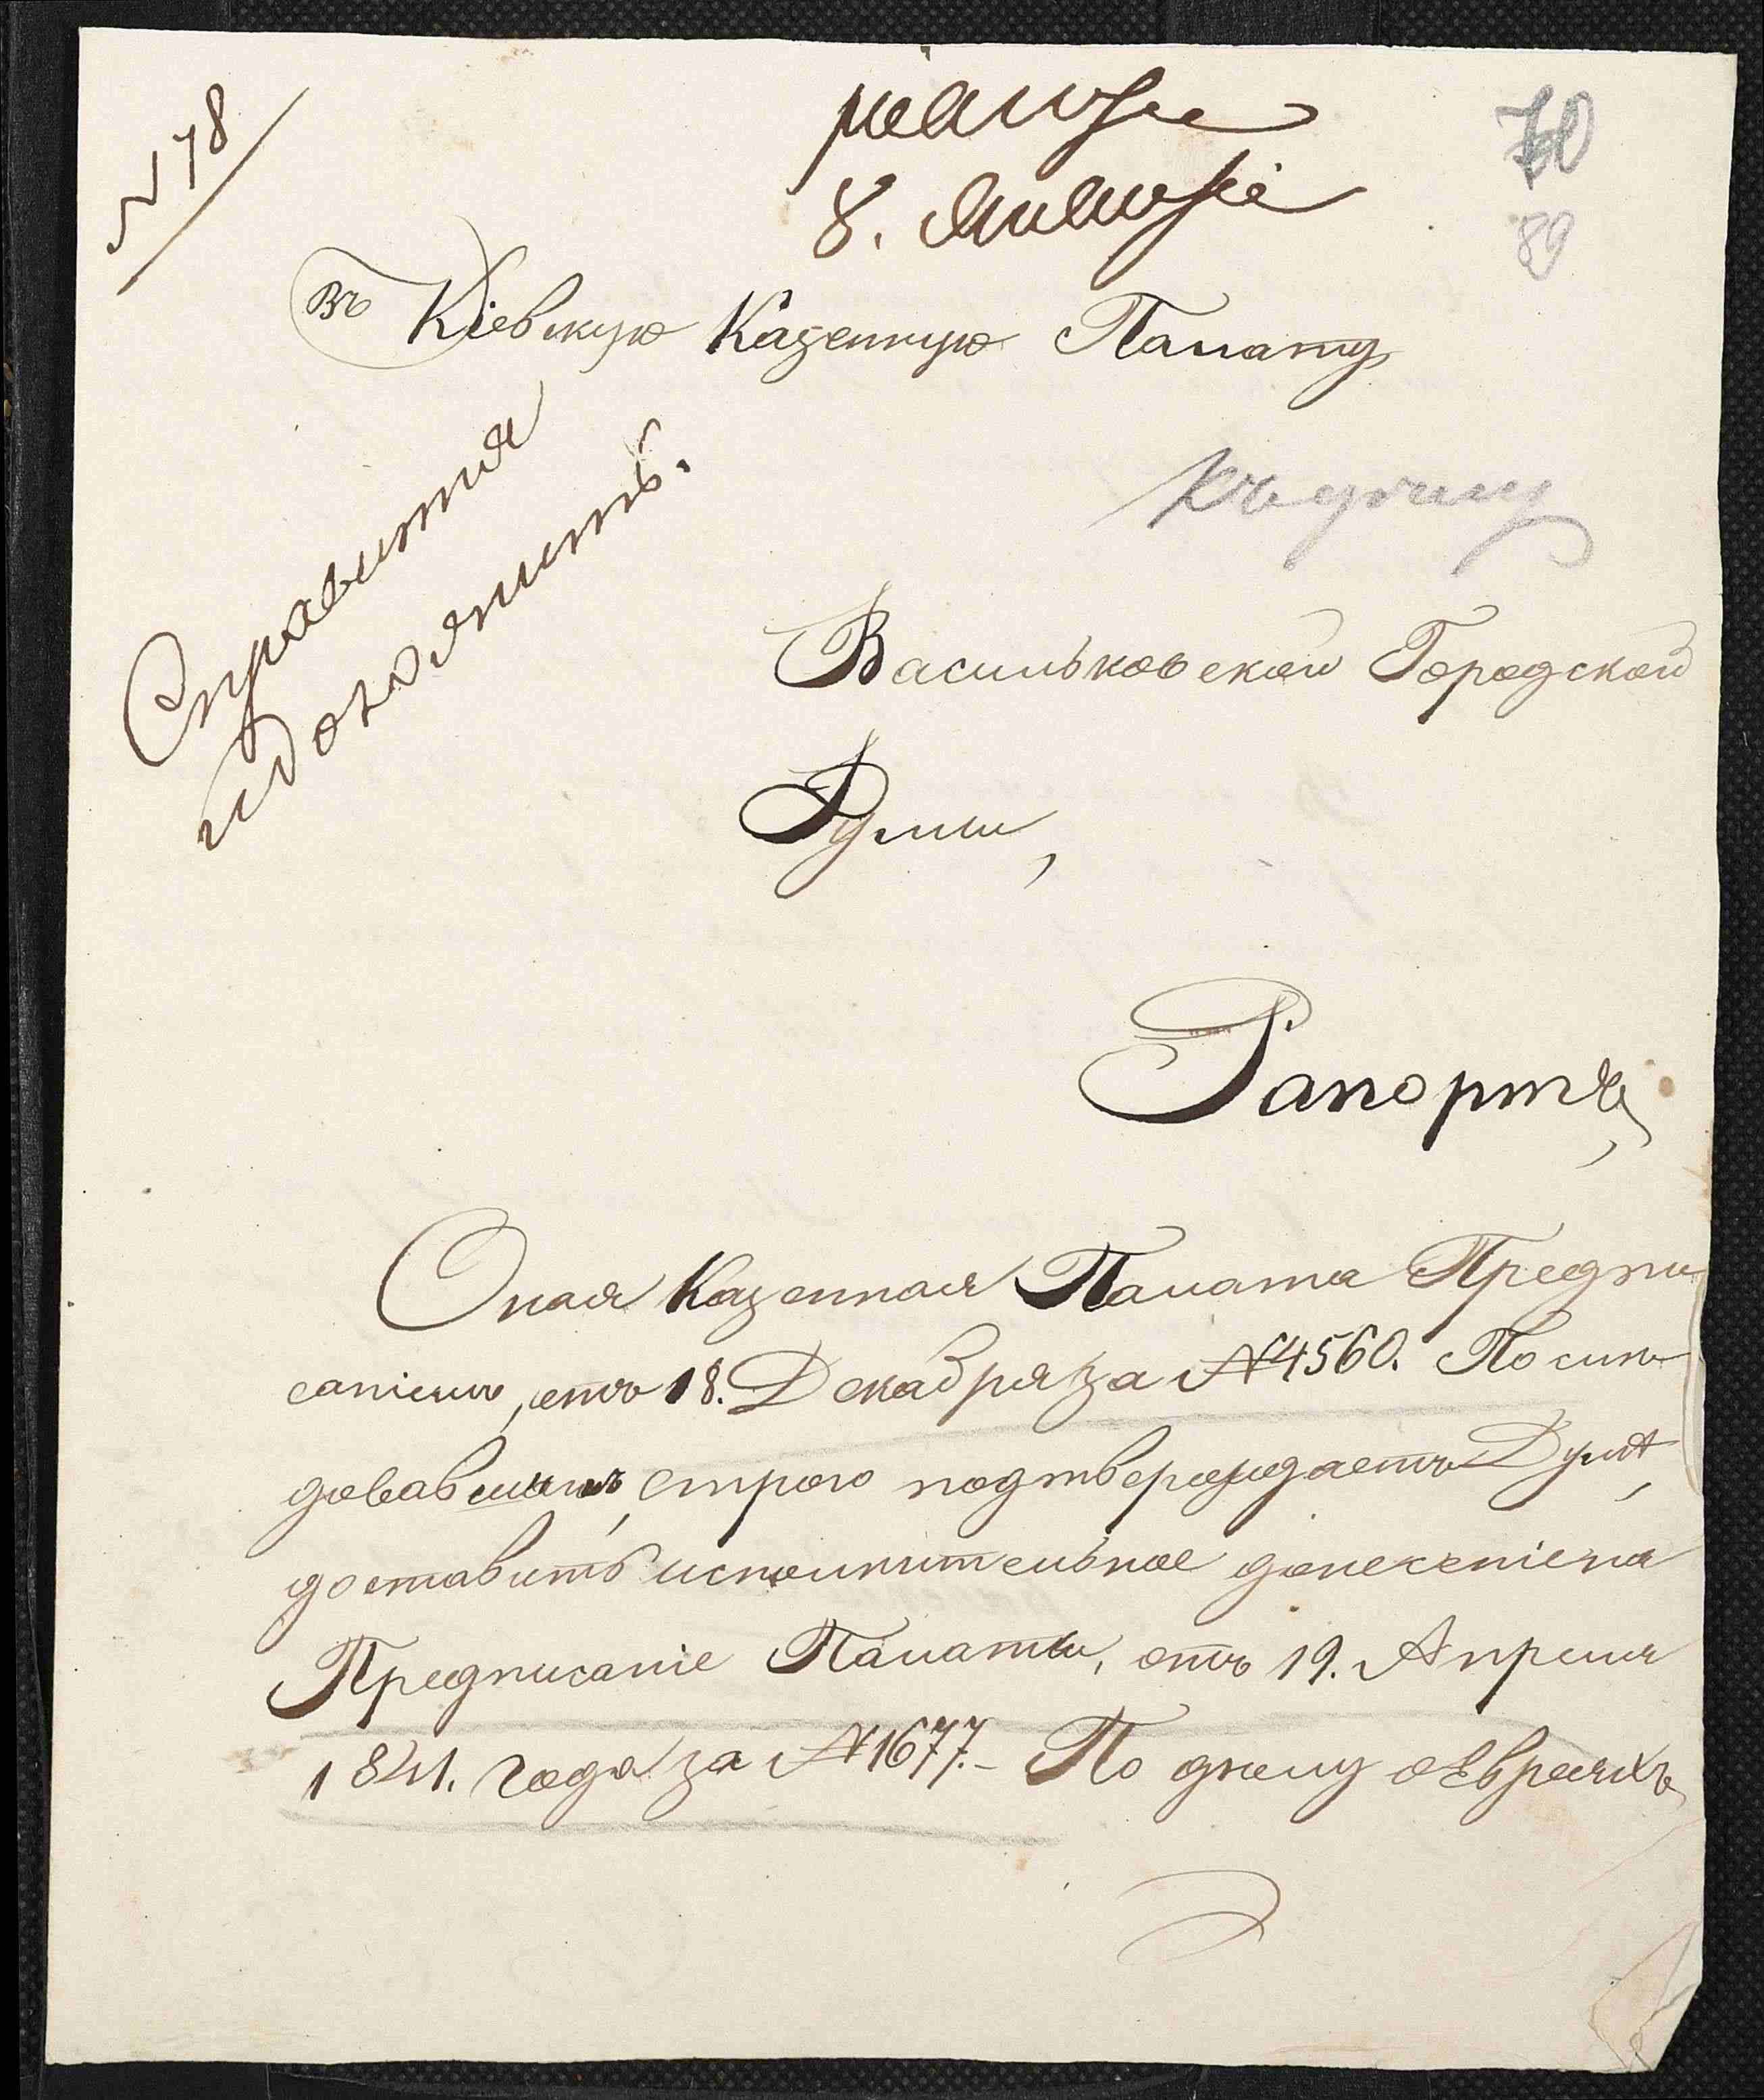 N 78
8. Января
70
89
Въ Кіевскую Казенную Палату
Справится
и доложить.
Къ дѣлу
Васильковской Городской
Думы,
Рапортъ,
Оная Казенная Палата Предпи
саніемъ, отъ 18. Декабря за №4560. Послѣ
довавшимъ, строго подтверждаетъ Думѣ,
доставить исполнительное донесеніе на
Предписаніе Палаты, отъ 19. Апреля
1841. года за №1677.- По дѣлу о Евреяхъ,